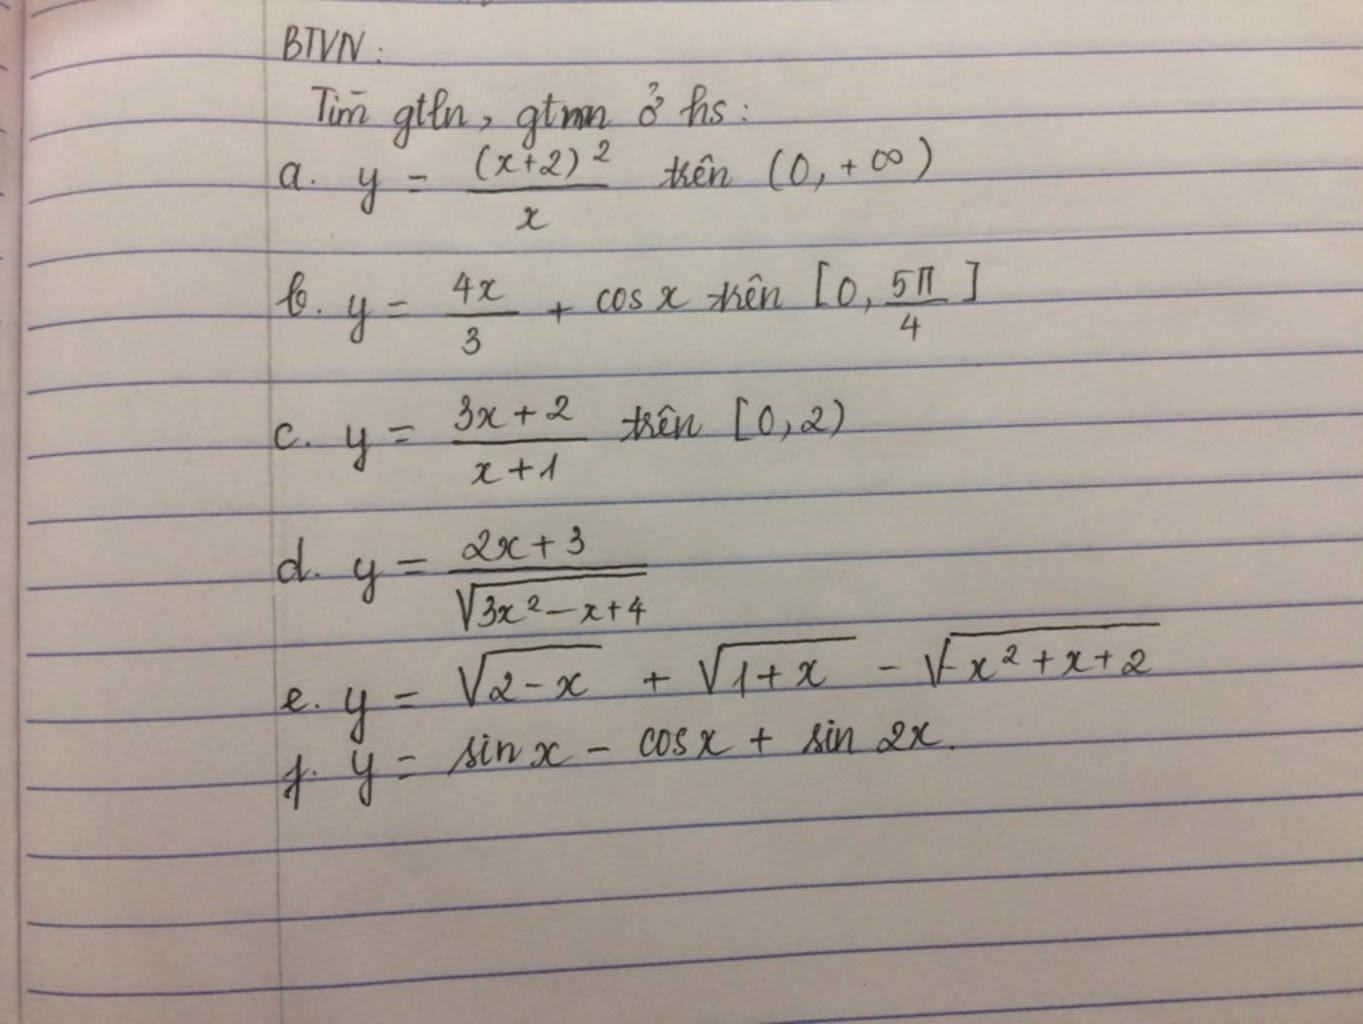 BTVN:
Tìm gtln, gtnn ở hs:
a. y = (x+2)² / x trên (0, +∞)
b. y = 4x/3 + cos x trên [0, 5π/4]
c. y = (3x+2)/(x+1) trên [0,2)
d. y = (2x+3)/√(3x²-x+4)
e. y = √(2-x) + √(1+x) - √(-x²+x+2)
f. y = sin x - cos x + sin 2x.